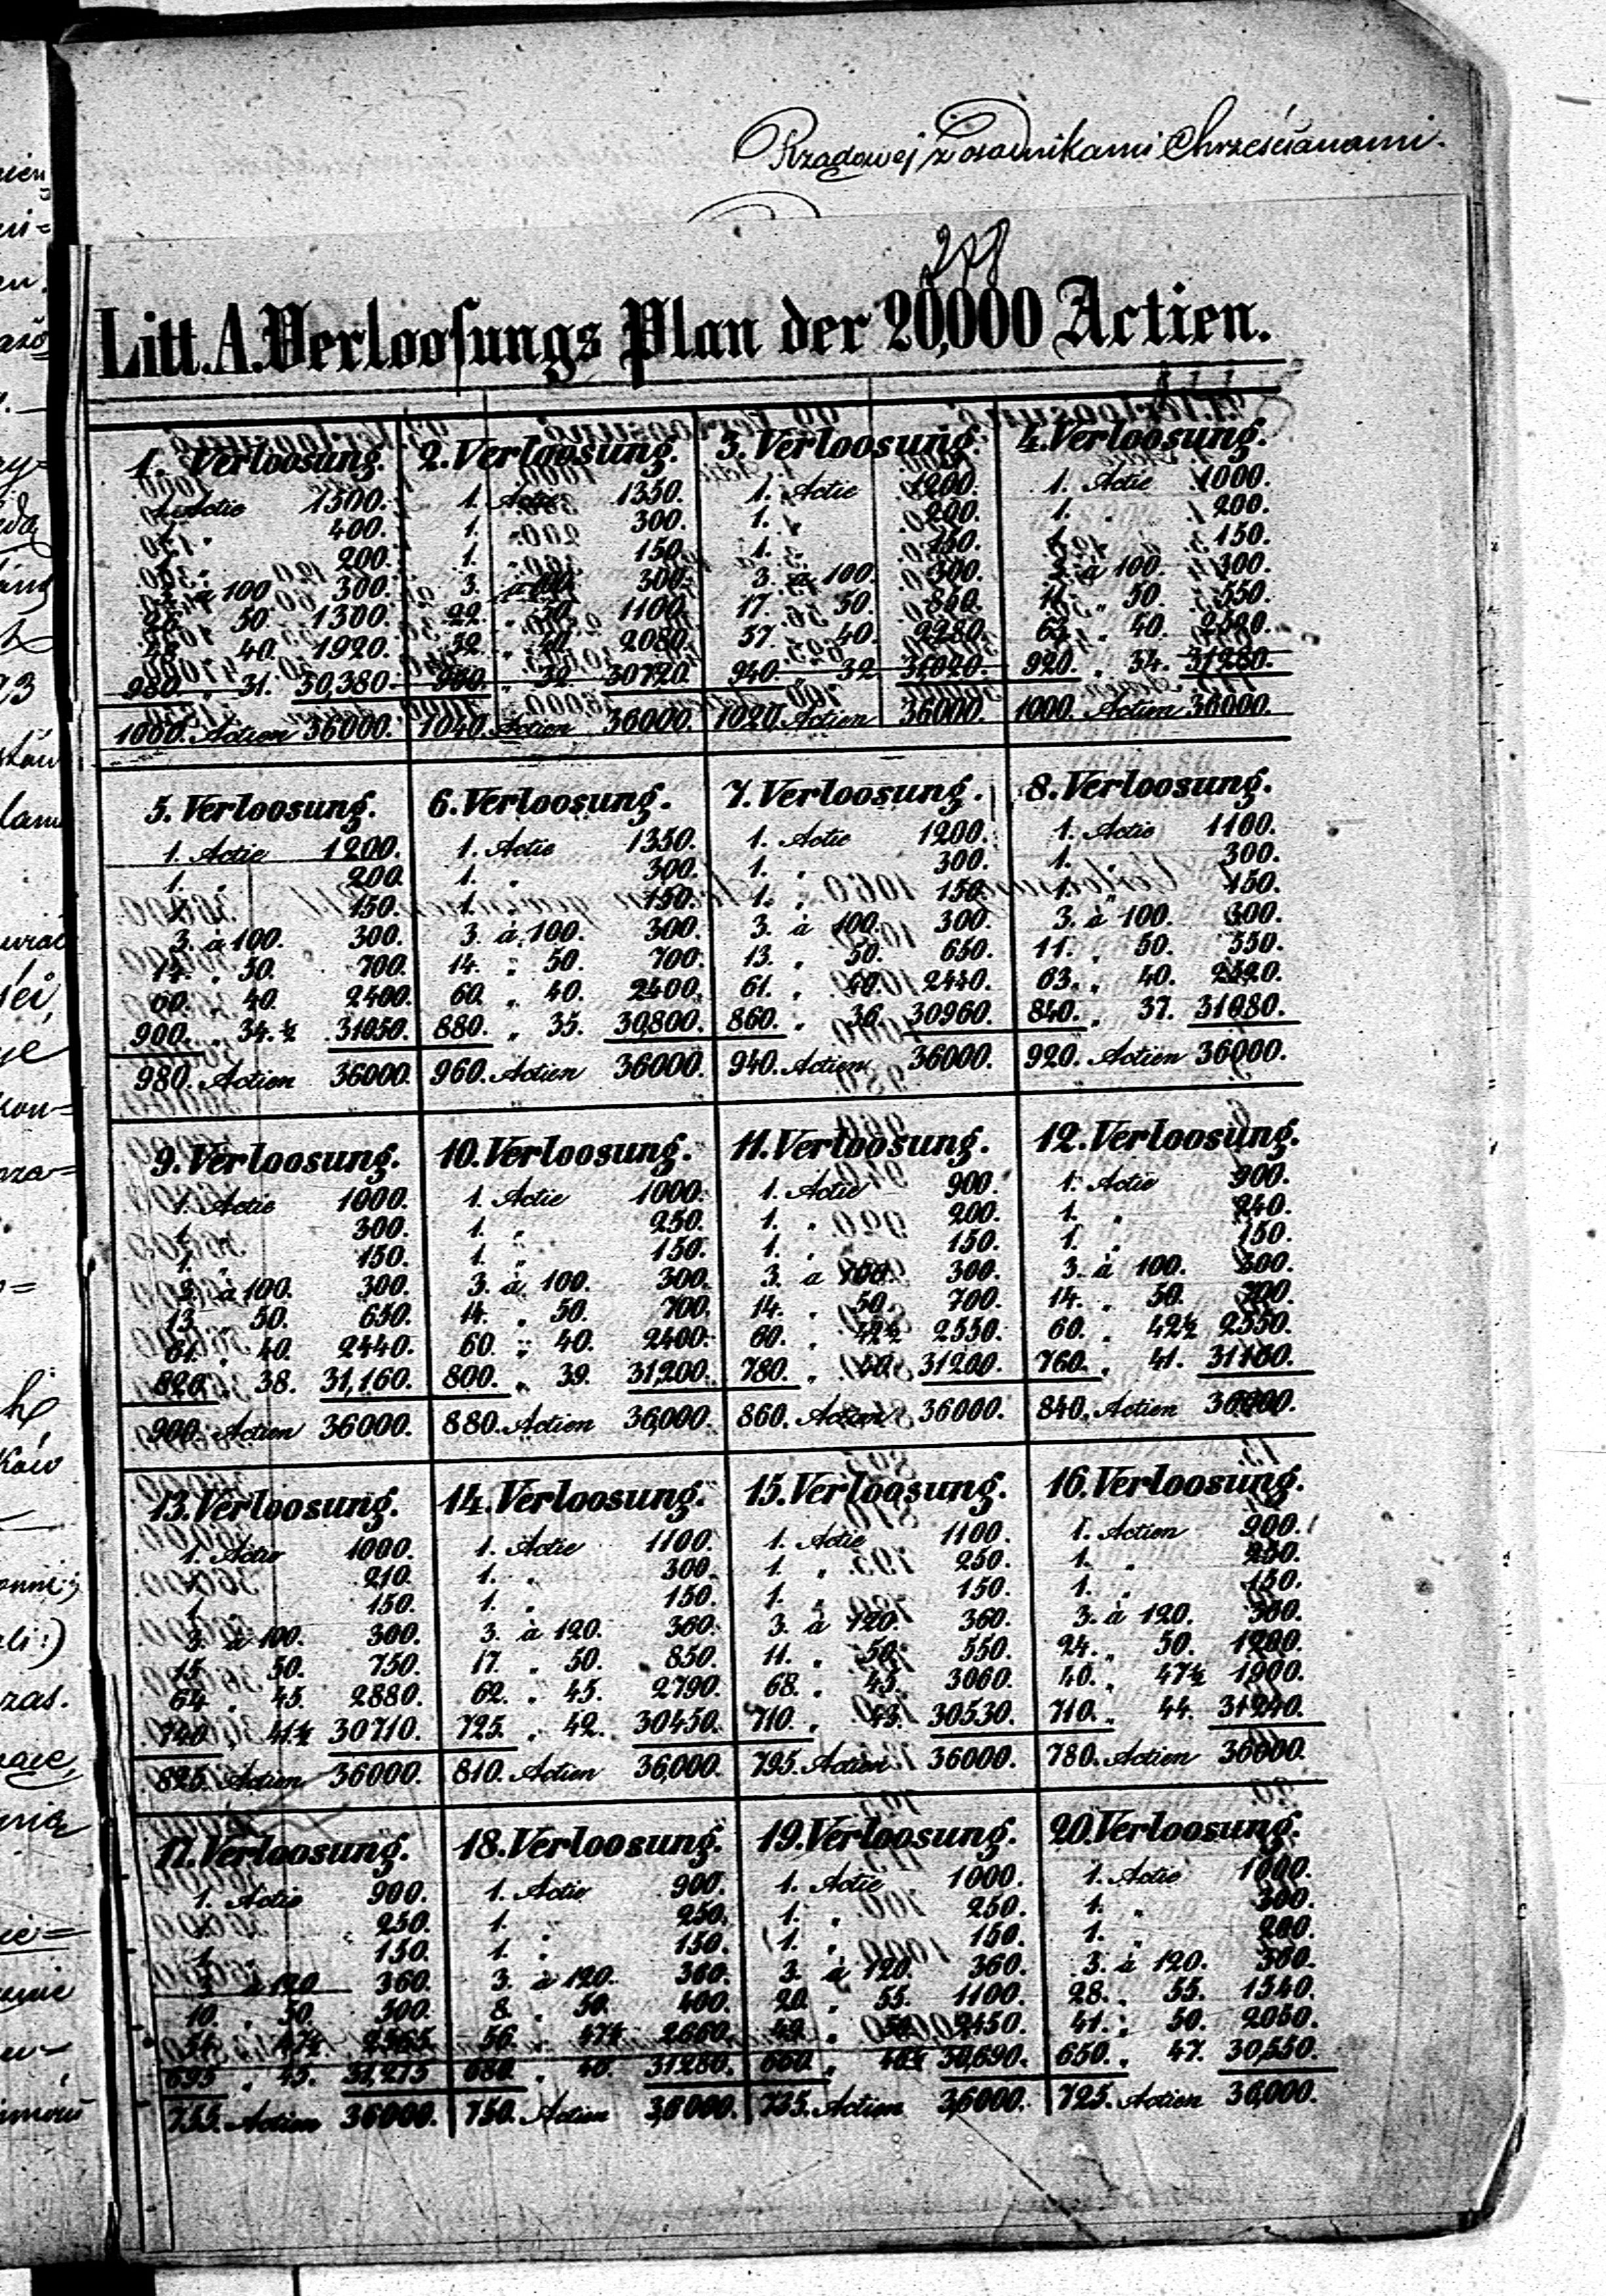 Rządowej z osadnikami Chrześcianami.
Litt. A. Verloosungs Plan der 20,000 Actien.
1. Verloosung.
1. Actie 1500.
1. „ 400.
1. „ 200.
3. à 100. 300.
26. „ 50. 1300.
48. „ 40. 1920.
980. „ 31. 30,380.
1060. Actien 36000.
2. Verloosung.
1. Actie 1350.
1. 300.
1. 150.
3. à 100. 300.
22. „ 50. 1100.
52. „ 40. 2080.
960. „ 32. 30720.
1040. Actien 36000.
3. Verloosung.
1. Actie 1200.
1. 200.
1. 150.
3. à 100. 300.
17. 50. 850.
57. 40. 2280.
940. „ 33. 31020.
1020. Actien 36000.
4. Verloosung.
1. Actie 1000.
1. „ 200.
1. „ 150.
3. à 100. 300.
11. „ 50. 550.
63. „ 40. 2520.
920. „ 34. 31280.
1000. Actien 36000.
5. Verloosung.
1. Actie 1200.
1. „ 200.
1. „ 150.
3. à 100. 300.
14. „ 50. 700.
60. „ 40. 2400.
900. „ 34.½ 31050.
980. Actien 36000.
6. Verloosung.
1. Actie 1350.
1. „ 300.
1. „ 150.
3. à 100. 300.
14. „ 50. 700.
60. „ 40. 2400.
880. „ 35. 30,800.
960. Actien 36000.
7. Verloosung.
1. Actie 1200.
1. „ 300.
1. „ 150.
3. à 100. 300.
13. „ 50. 650.
61. „ 40. 2440.
860. „ 36. 30960.
940. Actien 36000.
8. Verloosung.
1. Actie 1100.
1. „ 300.
1. „ 150.
3. à 100. 300.
11. „ 50. 550.
63. „ 40. 2520.
840. „ 37. 31080.
920. Actien 36000.
9. Verloosung.
1. Actie 1000.
1. „ 300.
1. „ 150.
3. à 100. 300.
13. „ 50. 650.
61. „ 40. 2440.
820. „ 38. 31,160.
900. Actien 36000.
10. Verloosung.
1. Actie 1000.
1. „ 250.
1. „ 150.
3. à 100. 300.
14. „ 50. 700.
60. „ 40. 2400.
800. „ 39. 31,200.
880. Actien 36,000.
11. Verloosung.
1. Actie 900.
1. „ 200.
1. „ 150.
3. à 100. 300.
14. „ 50. 700.
60. „ 42½ 2550.
780. „ 40. 31200.
860. Actien 36000.
12. Verloosung.
1. Actie 900.
1. „ 240.
1. „ 150.
3. à 100. 300.
14. „ 50. 700.
60. „ 42½ 2550.
760. „ 41. 31160.
840. Actien 36000.
13. Verloosung.
1. Actie 1000.
1. 210.
1. 150.
3. à 100. 300.
15. „ 50. 750.
64. „ 45. 2880.
740. „ 41.½ 30710.
825. Actien 36000.
14. Verloosung.
1. Actie 1100.
1. „ 300.
1. „ 150.
3. à 120. 360.
17. „ 50. 850.
62. „ 45. 2790.
725. „ 42. 30450.
810. Actien 36,000.
15. Verloosung.
1. Actie 1100.
1. „ 250.
1. „ 150.
3. à 120. 360.
11. „ 50. 550.
68. „ 45. 3060.
710. „ 43. 30530.
795. Actien 36000.
16. Verloosung.
1. Actien 900.
1. „ 250.
1. „ 150.
3. à 120. 360.
24. „ 50. 1200.
40. „ 47½ 1900.
710. „ 44. 31240.
780. Actien 36000.
17. Verloosung.
1. Actie 900.
1. 250.
1. 150.
3. à 120 360.
10. „ 50. 500.
54. „ 47½ 2565.
695 „ 45. 31,275
755. Actien 36000.
18. Verloosung.
1. Actie 900.
1. „ 250.
1. „ 150.
3. à 120. 360.
8. „ 50. 400.
56. „ 47½ 2660.
680. „ 46. 31280.
750. Actien 36000.
19. Verloosung.
1. Actie 1000.
1. „ 250.
1. „ 150.
3. à 120. 360.
20. „ 55. 1100.
49. „ 50. 2450.
660. „ 46½ 30,690.
735. Actien 36000.
20. Verloosung.
1. Actie 1000.
1. „ 300.
1. „ 200.
3. à 120. 360.
28. „ 55. 1540.
41. „ 50. 2050.
650. „ 47. 30,550.
725. Actien 36,000.